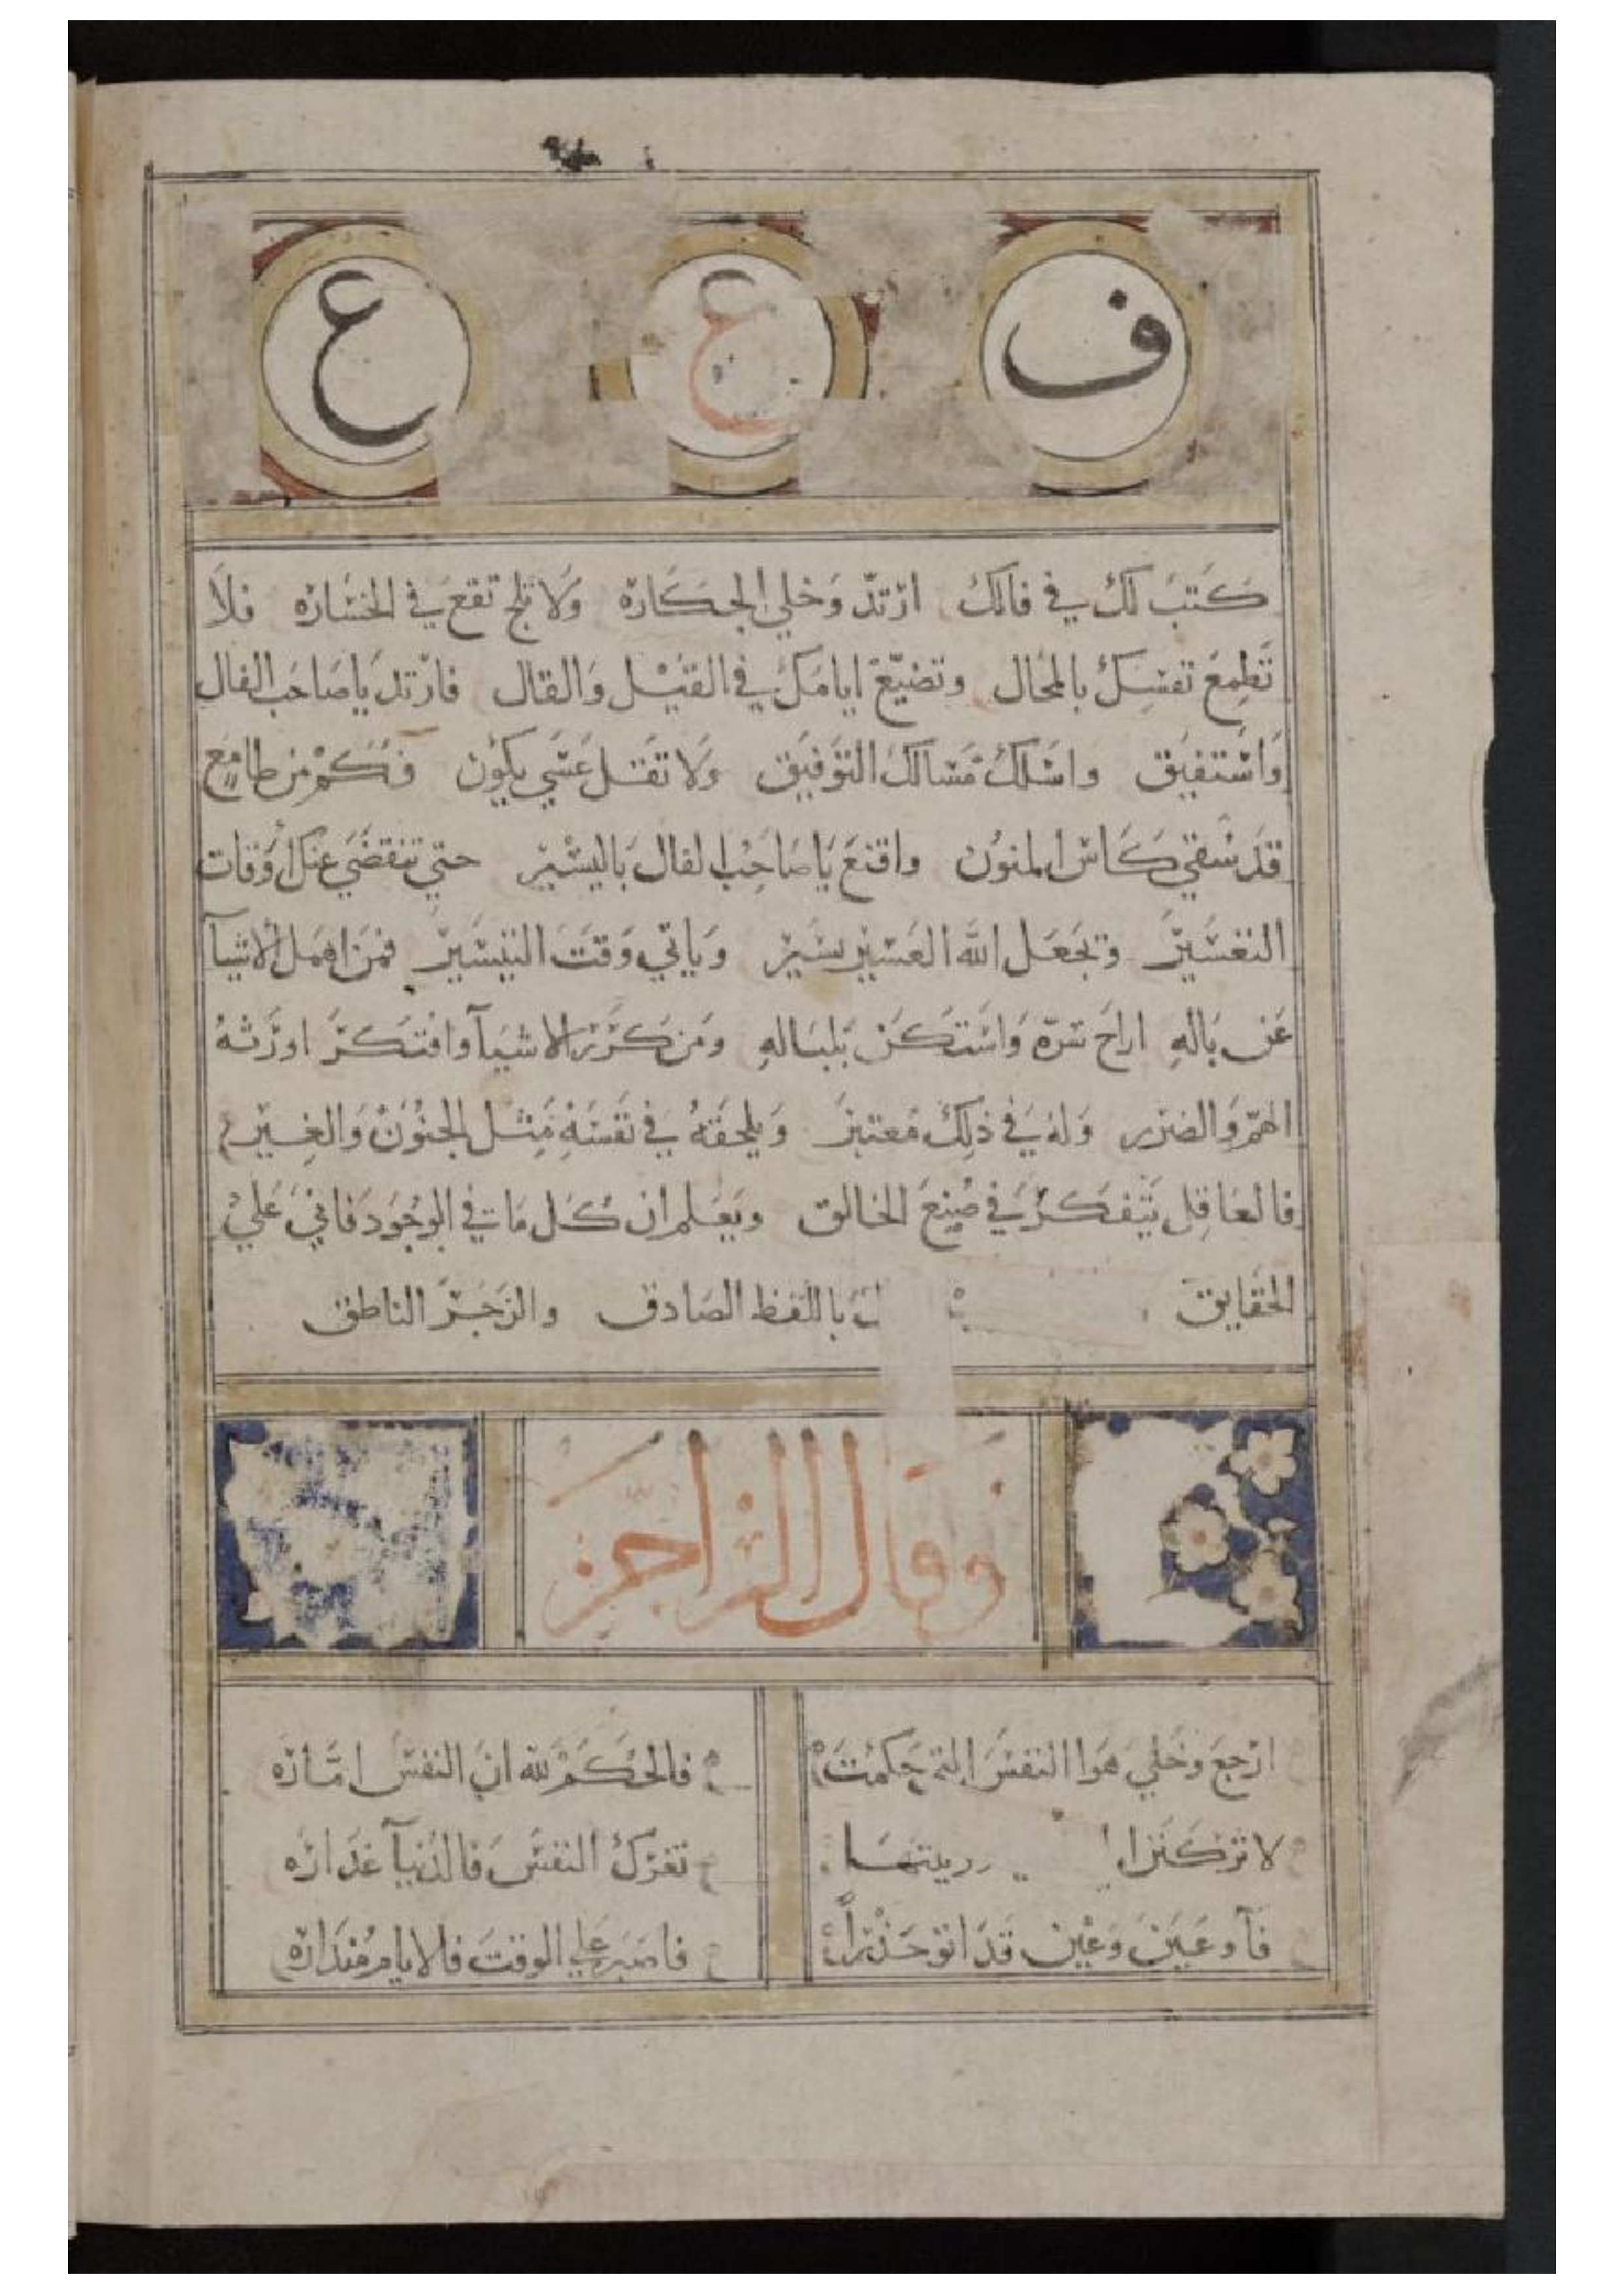 ف ع ع
كتب لك في فالك ارتد وخلي الجكاره ولا تلج تقع في الخساره فلا
تطمع نفسك بالمحال وتضيع ايامك في القيل والقال فارتد يا صاحب الفال
واستفيق واسلك مسالك التوفيق ولا تقل عسي يكون فكم من طامع
قد سقي كاس المنون واقنع يا صاحب الفال باليسير حتي تنقضي عنك اوقات
التعسير ويجعل الله العسير يسير وياتي وقت التيسير فمن اهمل الاشيآ
عن باله اراح سره واستكن بلباله ومن كرر الاشيآ وافتكر اورثه
الهم والضرر وله في ذلك معتبر ويلحقه في نفسه مثل الجنون والغير
فالعاقل يتفكر في صنع الخالق ويعلم ان كل ما في الوجود فاني علي
الحقايق باللفظ الصادق والزجر الناطق
وقال الزاجر
ارجع وخلي هوا النفس التي حكمت فالحكم لله ان النفس اماره
لا تركنن تغرك النفس فالدنيا غداره
وعين قد فاصبر علي الوقت فالايام